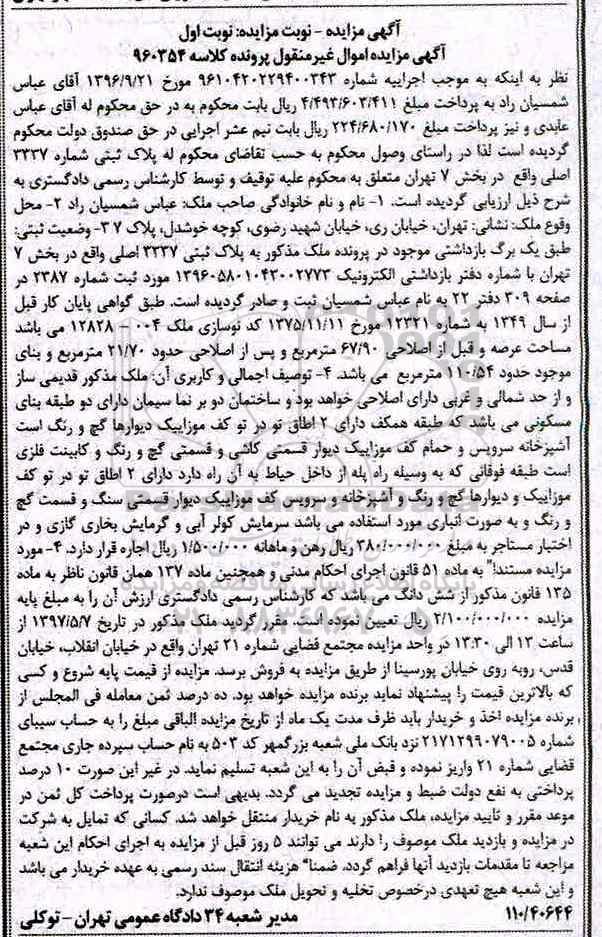 آگهی مزایده - نوبت مزایده: نوبت اول
آگهی مزایده اموال غیرمنقول پرونده کلاسه ۹۶۰۳۵۴
نظر به اینکه به موجب اجراییه شماره ۹۶۱۰۴۲۰۲۲۹۴۰۰۳۴۳ مورخ ۱۳۹۶/۹/۲۱ آقای عباس
شمسیان راد به پرداخت مبلغ ۴/۴۹۳/۶۰۳/۴۱۱ ریال بابت محکوم به در حق محکوم له آقای عباس
عابدی و نیز پرداخت مبلغ ۲۲۴/۶۸۰/۱۷۰ ریال بابت نیم عشر اجرایی در حق صندوق دولت محکوم
گردیده است لذا در راستای وصول محکوم به حسب تقاضای محکوم له پلاک ثبتی شماره ۳۳۳۷
اصلی واقع در بخش ۷ تهران متعلق به محکوم علیه توقیف و توسط کارشناس رسمی دادگستری به
شرح ذیل ارزیابی گردیده است. ۱- نام و نام خانوادگی صاحب ملک: عباس شمسیان راد ۲- محل
وقوع ملک: نشانی: تهران، خیابان ری، خیابان شهید رضوی، کوچه خوشدل، پلاک ۷ ۳- وضعیت ثبتی:
طبق یک برگ بازداشتی موجود در پرونده ملک مذکور به پلاک ثبتی ۳۳۳۷ اصلی واقع در بخش ۷
تهران با شماره دفتر بازداشتی الکترونیک ۱۳۹۶۰۵۸۰۱۰۴۳۰۰۲۷۷۳ مورد ثبت شماره ۲۳۸۷ در
صفحه ۳۰۹ دفتر ۲۲ به نام عباس شمسیان ثبت و صادر گردیده است. طبق گواهی پایان کار قبل
از سال ۱۳۴۹ به شماره ۱۲۳۲۱ مورخ ۱۳۷۵/۱۱/۱۱ کد نوسازی ملک ۰۰۴ - ۱۲۸۲۸ می باشد
مساحت عرصه و قبل از اصلاحی ۶۷/۹۰ مترمربع و پس از اصلاحی حدود ۲۱/۷۰ مترمربع و بنای
موجود حدود ۱۱۰/۵۴ مترمربع می باشد. ۴- توصیف اجمالی و کاربری آن: ملک مذکور قدیمی ساز
و از حد شمالی و غربی دارای اصلاحی خواهد بود و ساختمان دو بر نما سیمان دارای دو طبقه بنای
مسکونی می باشد که طبقه همکف دارای ۲ اطاق تو در تو کف موزاییک دیوارها گچ و رنگ است
آشپزخانه سرویس و حمام کف موزاییک دیوار قسمتی کاشی و قسمتی گچ و رنگ و کابینت فلزی
است طبقه فوقانی که به وسیله راه پله از داخل حیاط به آن راه دارد دارای ۲ اطاق تو در تو کف
موزاییک و دیوارها گچ و رنگ و آشپزخانه و سرویس کف موزاییک دیوار قسمتی سنگ و قسمت گچ
و رنگ و به صورت انباری مورد استفاده می باشد سرمایش کولر آبی و گرمایش بخاری گازی و در
اختیار مستاجر به مبلغ ۳۸۰/۰۰۰/۰۰۰ ریال رهن و ماهانه ۱/۵۰۰/۰۰۰ ریال اجاره قرار دارد. ۴- مورد
مزایده مستندا" به ماده ۵۱ قانون اجرای احکام مدنی و همچنین ماده ۱۳۷ همان قانون ناظر به ماده
۱۳۵ قانون مذکور از شش دانگ می باشد که کارشناس رسمی دادگستری ارزش آن را به مبلغ پایه
مزایده ۲/۱۰۰/۰۰۰/۰۰۰ ریال تعیین نموده است. مقرر گردید ملک مذکور در تاریخ ۱۳۹۷/۵/۷ از
ساعت ۱۳ الی ۱۳:۳۰ در واحد مزایده مجتمع قضایی شماره ۲۱ تهران واقع در خیابان انقلاب، خیابان
قدس، روبه روی خیابان پورسینا از طریق مزایده به فروش برسد. مزایده از قیمت پایه شروع و کسی
که بالاترین قیمت را پیشنهاد نماید برنده مزایده خواهد بود. ده درصد ثمن معامله فی المجلس از
برنده مزایده اخذ و خریدار باید ظرف مدت یک ماه از تاریخ مزایده الباقی مبلغ را به حساب سیبای
شماره ۲۱۷۱۲۹۹۰۷۹۰۰۵ نزد بانک ملی شعبه بزرگمهر کد ۵۰۳ به نام حساب سپرده جاری مجتمع
قضایی شماره ۲۱ واریز نموده و قبض آن را به این شعبه تسلیم نماید. در غیر این صورت ۱۰ درصد
پرداختی به نفع دولت ضبط و مزایده تجدید می گردد. بدیهی است درصورت پرداخت کل ثمن در
موعد مقرر و تایید مزایده، ملک مذکور به نام خریدار منتقل خواهد شد. کسانی که تمایل به شرکت
در مزایده و بازدید ملک موصوف را دارند می توانند ۵ روز قبل از مزایده به اجرای احکام این شعبه
مراجعه تا مقدمات بازدید آنها فراهم گردد. ضمنا" هزینه انتقال سند رسمی به عهده خریدار می باشد
و این شعبه هیچ تعهدی درخصوص تخلیه و تحویل ملک موصوف ندارد.
۱۱۰/۴۰۶۴۴ مدیر شعبه ۳۴ دادگاه عمومی تهران - توکلی